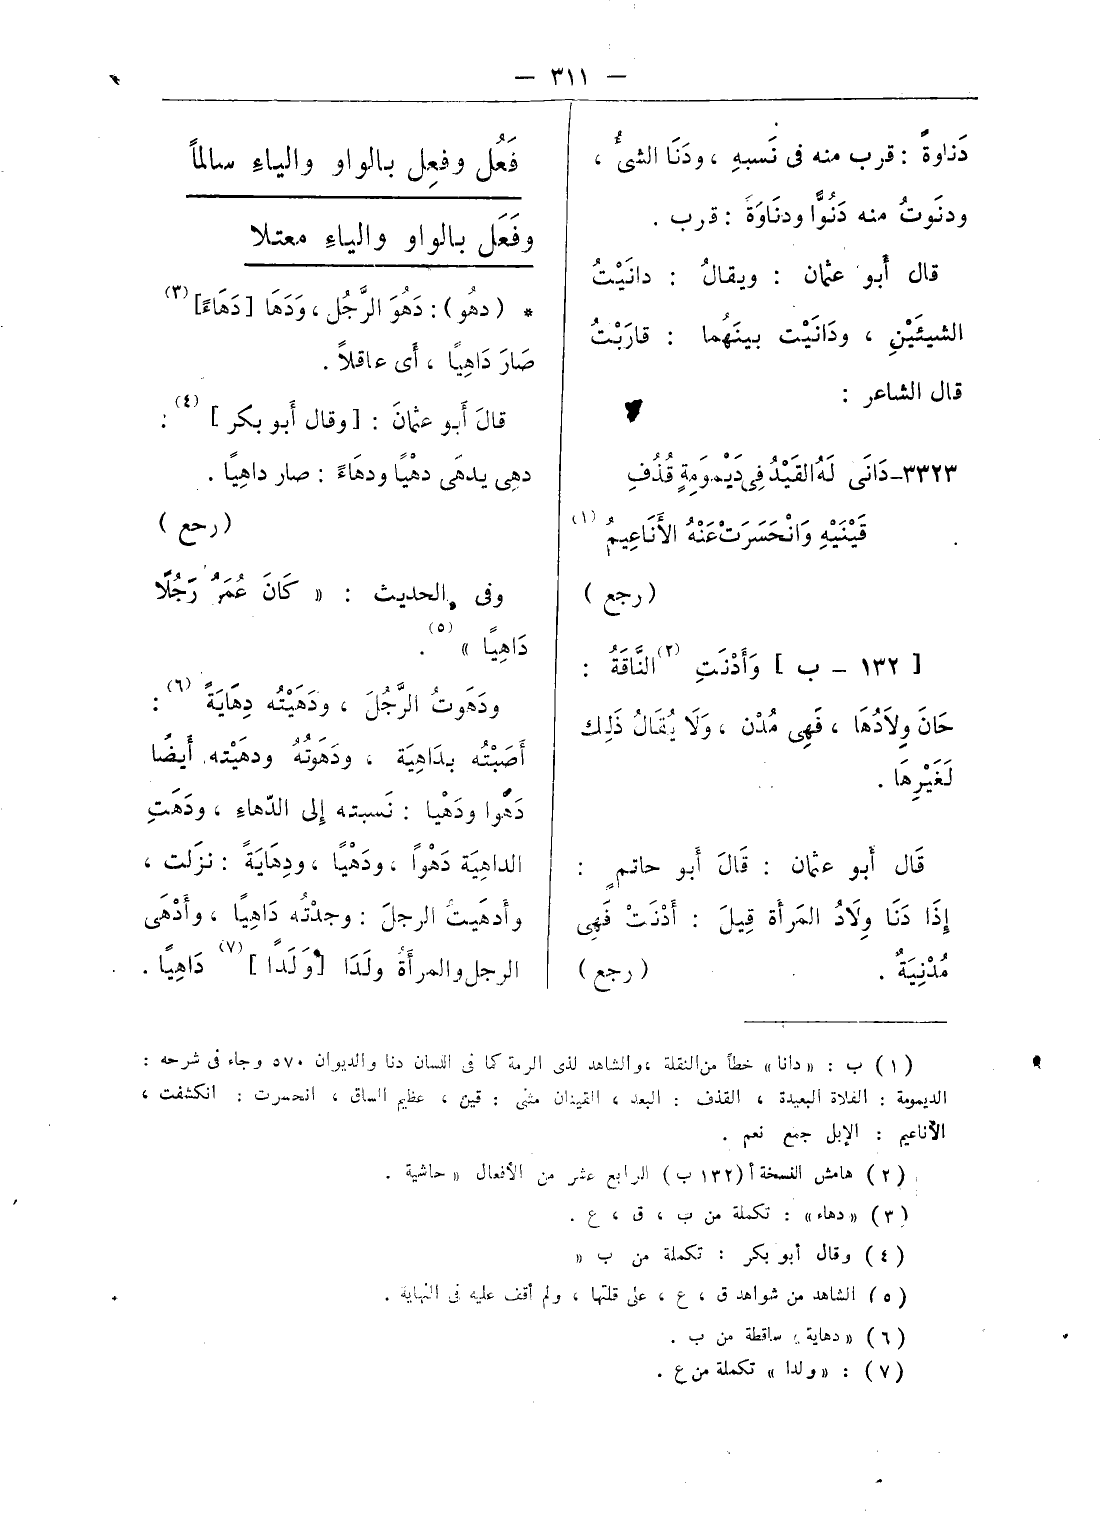 — ٣١١ —
دَناوةً : قرب منه فى نَسبهِ ، ودَنَا الشىءُ ،
ودنَوتُ منه دَنُوًّا ودنَاوَةً : قرب .
قال أَبو عثمان : ويقالُ : دانَيْتُ
الشيئَيْنِ ، ودَانَيْت بينَهُما : قارَبْتُ
قال الشاعر :
٣٣٢٣-دَانَى لَهُ القَيْدُ فِى دَيْمومَةٍ قُذُفِ
قَيْنَيْهِ وَانْحَسَرَتْ عَنْهُ الأَنَاعِيمُ (١)
(رجع)
[ ١٣٢ – ب ] وَأَدْنَتِ (٢) النَّاقَةُ :
حَانَ وِلاَدُهَا ، فَهِى مُدْن ، وَلَا يُقَالُ ذَلِك
لَغَيْرِهَا .
قَال أَبو عثمان : قَالَ أَبو حاتمٍ :
إِذَا دَنَا وِلَادُ المَرأَة قِيلَ : أَدْنَتْ فَهِى
مُدْنِيَةٌ . (رجع)
فَعُل وفعِل بالواو والياءِ سالماً
وفَعَل بالواو والياءِ معتلا
* (دهُو) : دَهُوَ الرَّجُل ، وَدَهَا [دَهَاءً] (٣)
صَارَ دَاهِيًا ، أَى عاقلاً .
قالَ أَبو عثمانَ : [وقال أَبو بكر] (٤) :
دهِى يدهَى دهْيًا ودهَاءً : صار داهِيًا .
(رجع)
وفى الحديث : « كَانَ عُمَرُ رَجُلًا
دَاهِيًا » (٥) .
ودَهَوتُ الرَّجُلَ ، ودَهَيْتُه دِهَايَةً (٦) :
أَصَبْتُه بدَاهِيَة ، ودَهَوتُهُ ودهَيْته أَيضًا
دَهْوا ودَهْيا : نَسبته إِلى الدّهاءِ ، ودَهَتِ
الداهِيَة دَهْواً ، ودَهْيًا ، ودِهَايَةً : نزَلت ،
وأَدهَيتُ الرجلَ : وجدْتُه دَاهِيًا ، وأَدْهَى
الرجل والمرأَةُ ولَدَا [وَلَدًا] (٧) دَاهِيًا .
(١) ب : «دانا» خطأ من النقلة ، والشاهد لذى الرمة كما فى اللسان دنا والديوان ٥٧٠ وجاء فى شرحه :
الديمومة : الفلاة البعيدة ، القذف : البعد ، القينان مثنى : قين ، عظيم الساق ، انحسرت : انكشفت ،
الأناعيم : الإبل جمع نعم .
(٢) هامش النسخة أ (١٣٢ ب) الرابع عشر من الأفعال « حاشية .
(٣) «دهاء» : تكملة من ب ، ق ، ع .
(٤) وقال أبو بكر : تكملة من ب «
(٥) الشاهد من شواهد ق ، ع ، على قلتها ، ولم أقف عليه فى النهاية .
(٦) «دهاية» ساقطة من ب .
(٧) : «ولدا» تكملة من ع .